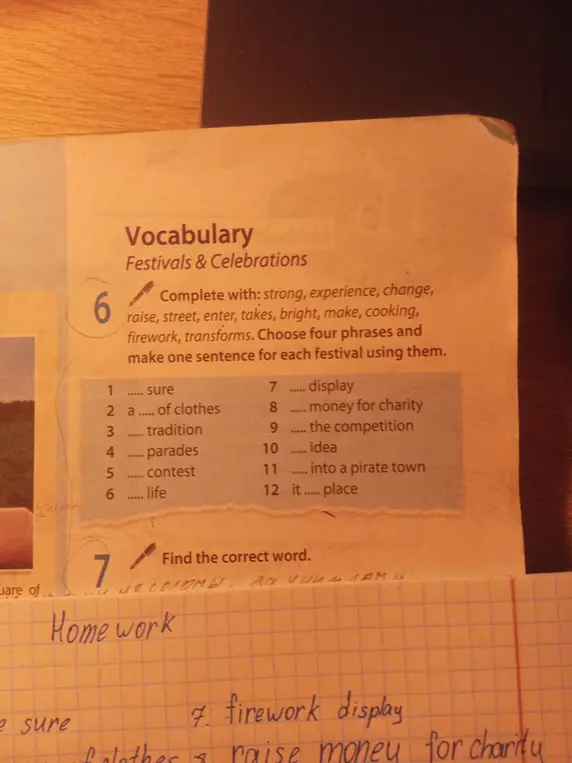 Vocabulary
Festivals & Celebrations
6 Complete with: strong, experience, change,
raise, street, enter, takes, bright, make, cooking,
firework, transforms. Choose four phrases and
make one sentence for each festival using them.
1 ..... sure
2 a ..... of clothes
3 ..... tradition
4 ..... parades
5 ..... contest
6 ..... life
7 ..... display
8 ..... money for charity
9 ..... the competition
10 ..... idea
11 ..... into a pirate town
12 it ..... place
7 Find the correct word.
uare of
Homework
e sure
7. firework display
f clothes 8 raise money for charity